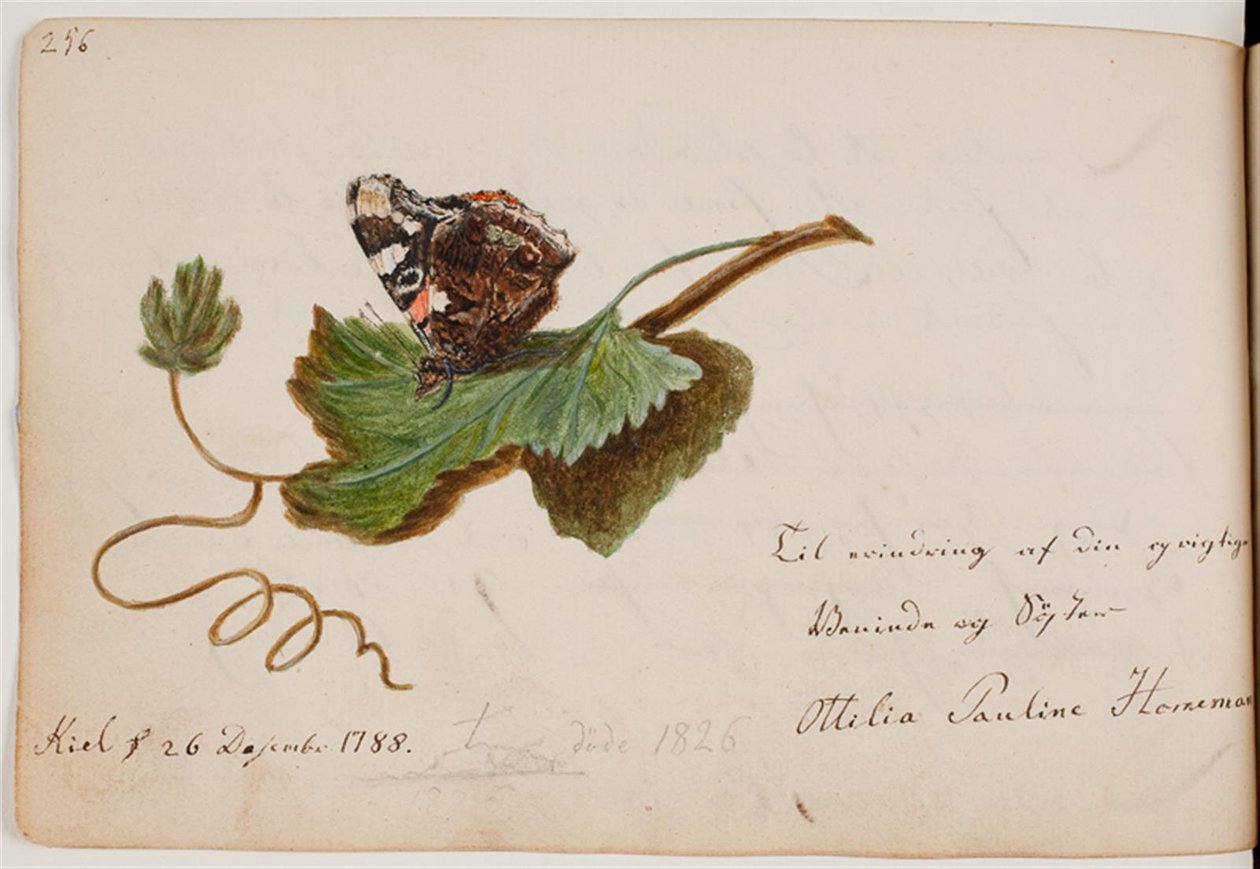 256
Til erindring af din oprigtige
Veninde og Söster
Ottilia Pauline Horneman
Kiel 26 Desembr 1788.
döde 1826